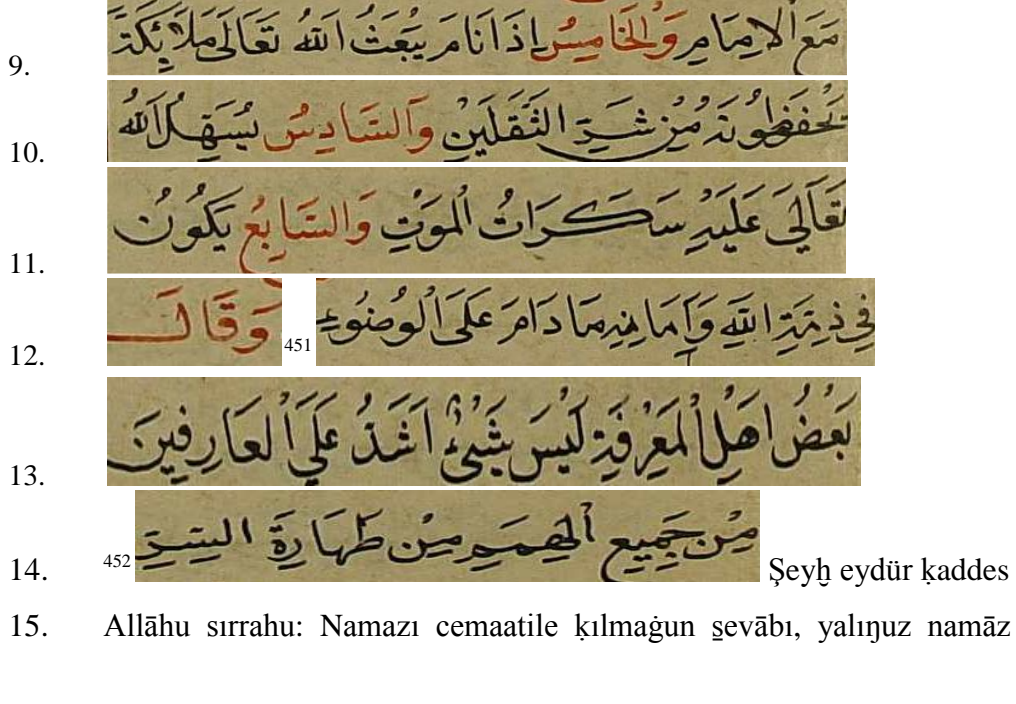 9. مَعَ الْاِمَامِ وَالْخَامِسُ اِذَا نَامَ يَبْعَثُ اللّٰهُ تَعَالَى مَلَائِكَةً
10. تَحْفَظُونَهُ مِنْ شَرِّ الثَّقَلَيْنِ وَالسَّادِسُ يُسَهِّلُ اللّٰهُ
11. تَعَالَى عَلَيْهِ سَكَرَاتُ الْمَوْتِ وَالسَّابِعُ يَكُونُ
12. فِي ذِمَّةِ اللّٰهِ وَاَمَانِهِ مَا دَامَ عَلَى الْوُضُوءِ 451 وَقَالَ
13. بَعْضُ اَهْلِ الْمَعْرِفَةِ لَيْسَ بِشَيْءٍ اَشَدُّ عَلَى الْعَارِفِينَ
14. مِنْ جَمِيعِ الْهِمَمِ مِنْ طَهَارَةِ السِّرِّ 452 Şeyḫ eydür ḳaddes
15. Allāhu sırrahu: Namazı cemaatile ḳılmaġun s̱evābı, yalıŋuz namāz